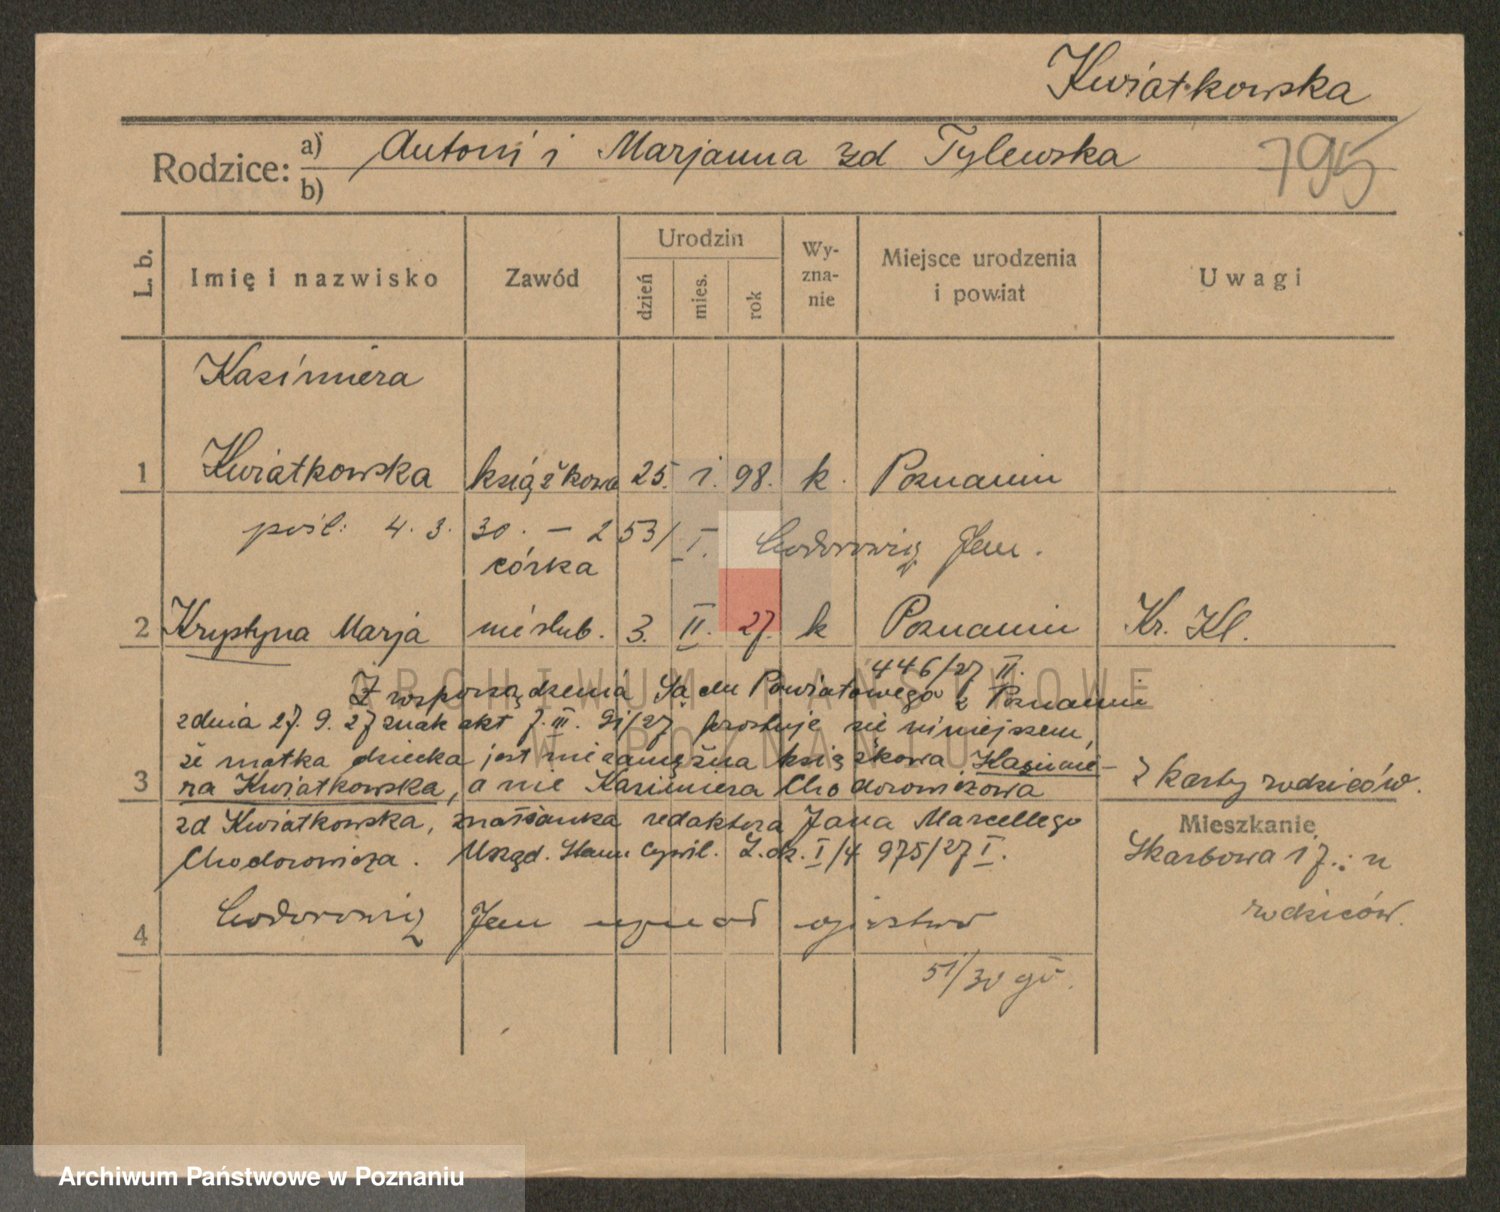 Kwiatkowska
Rodzice: a) Antoni i Marjanna zd Tylewska
795
b)
L. b.
Imię i nazwisko
Zawód
Urodzin
dzień
mies.
rok
Wy-
zna-
nie
Miejsce urodzenia
i powiat
Uwagi
Kazimiera
1 Kwiatkowska książkowa 25. I. 98. k. Poznaniu
pośl: 4. 3. 30. – 253/I. Chodorowicz Jan.
córka
2 Krystyna Marja nieślub. 3. II. 27. k Poznaniu Kr. Kl.
446/27 II.
Z rozporządzenia Sądu Powiatowego z Poznaniu
zdnia 27. 9. 27 znak akt 7. III. 91/27 prostuje się niniejszem,
że matka dziecka jest niezamężna książkowa Kazimie-
3 ra Kwiatkowska, a nie Kazimiera Chodorowiczowa
z karty rodziców.
zd Kwiatkowska, małżonka redaktora Jana Marcellego
Mieszkanie
Chodorowicza. Urząd. Stanu Cywil. L.dz. I/4 975/27 I.
Skarbowa 17.: u
rodziców.
4 Chodorowicz Jan uznał ojcostwo
51/30 gł.
ARCHIWUM PAŃSTWOWE
W POZNANIU
Archiwum Państwowe w Poznaniu